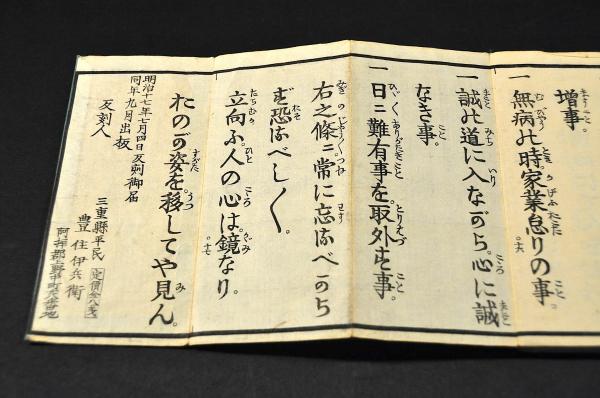 増事。
一 無病の時。家業怠りの事。
一 誠の道に入ながら。心に誠
なき事。
一 日ニ難有事を。取外す事。
右之條ニ常に忘るべから
ず恐るべし〱。
立向ふ。人の心は。鏡なり。
おのが姿を。移してや見ん。
明治十七年七月四日反刻御届
同年九月出板
反刻人
三重縣平民
豊住伊兵衛
定價金八戔
阿拝郡上野中町